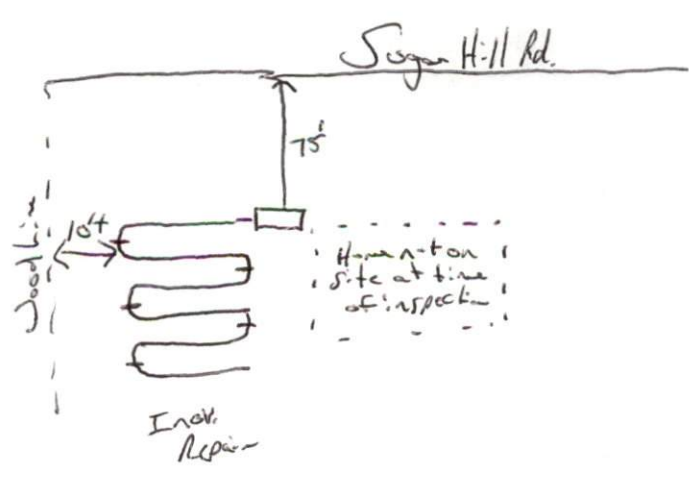 Sugar Hill Rd.
75'
10'+
Wood Line
Home not on
site at time
of inspection
Inov.
Repair